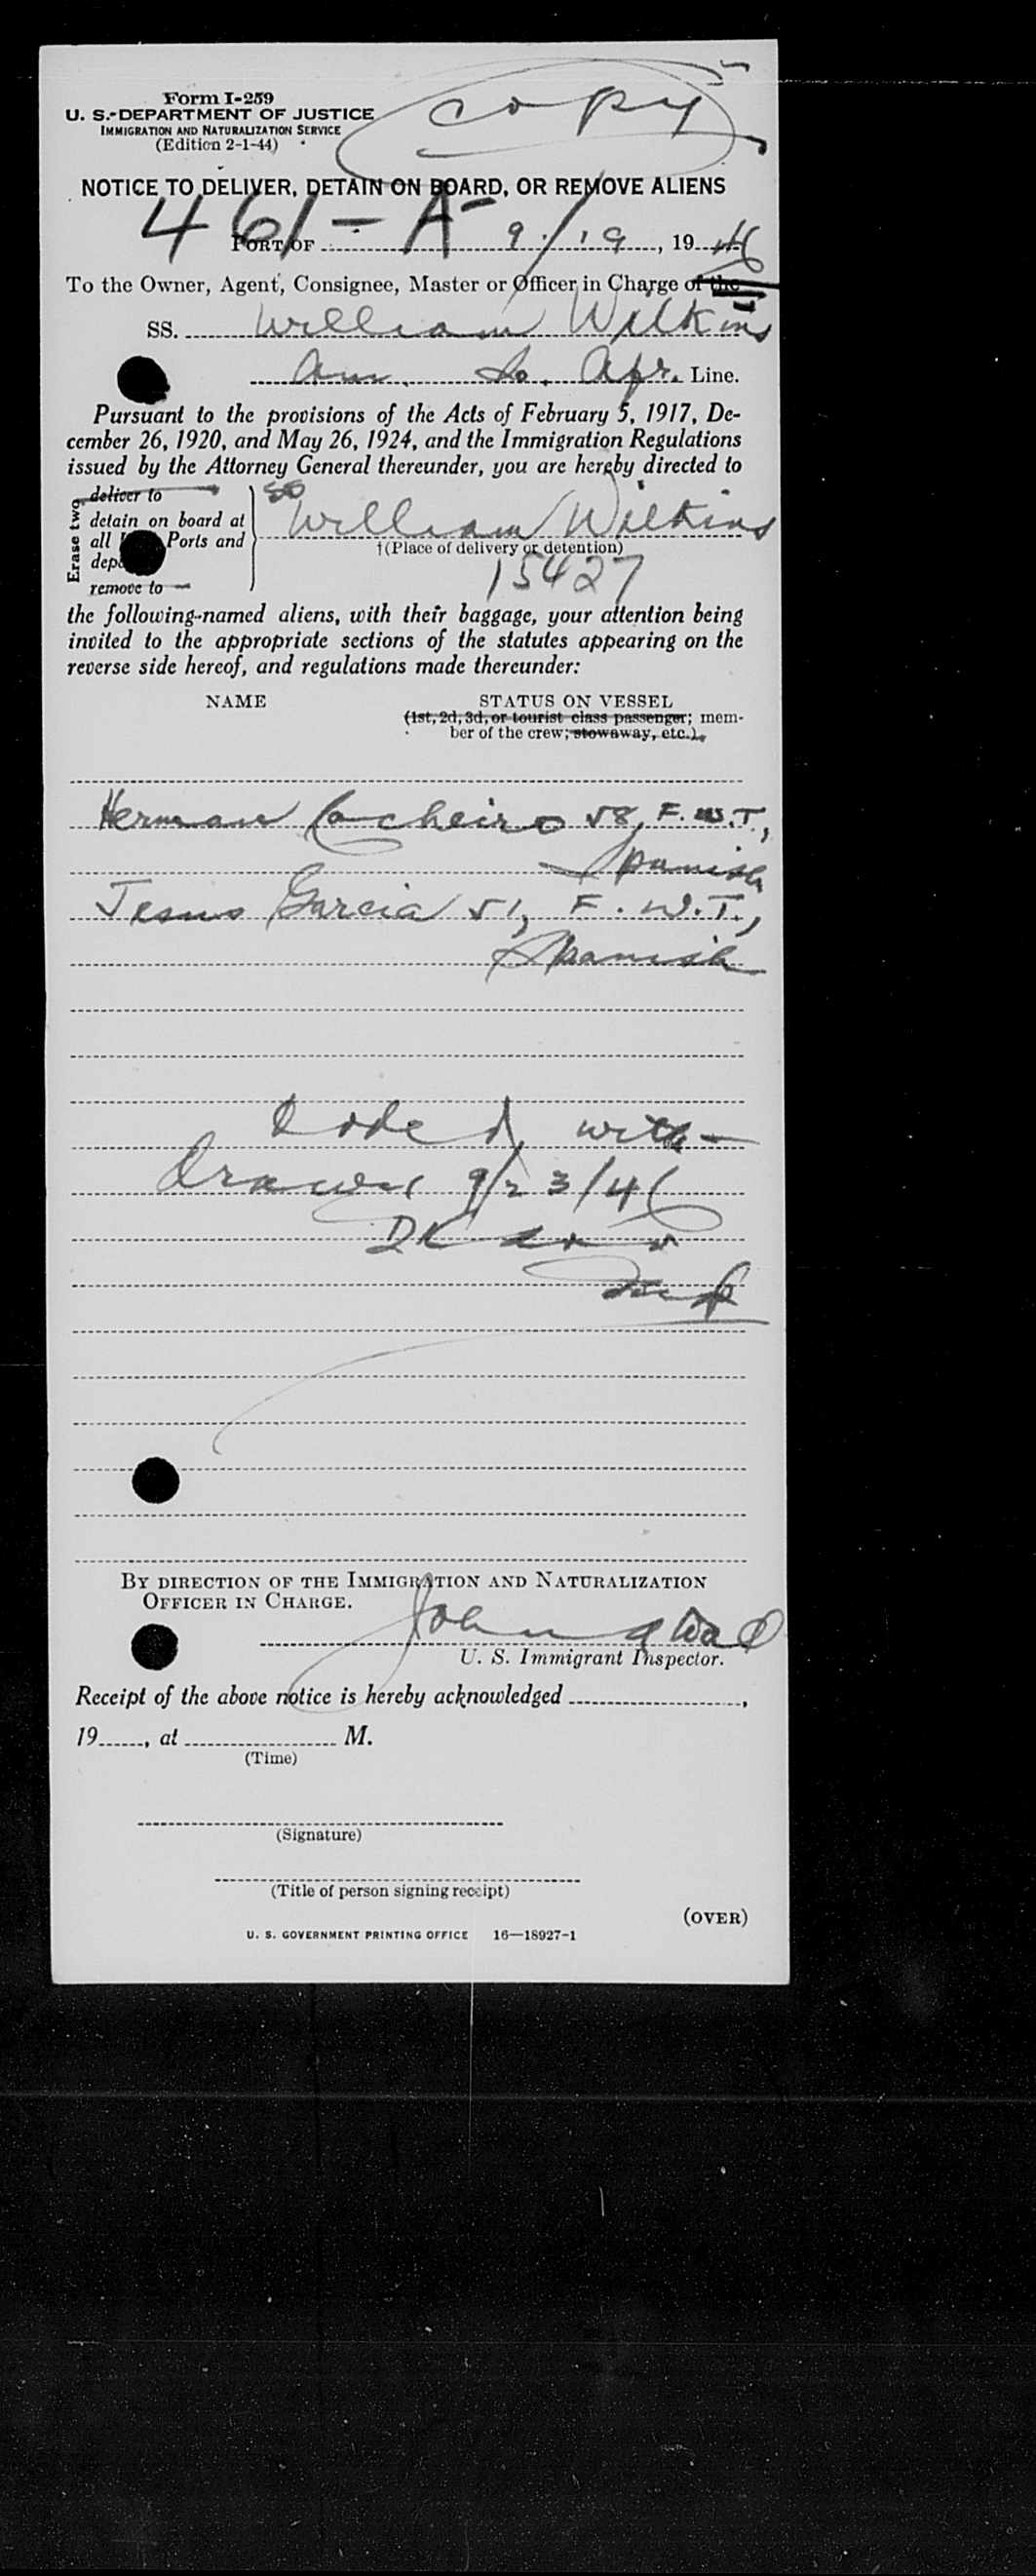 copy
Form I-259
U. S. DEPARTMENT OF JUSTICE
IMMIGRATION AND NATURALIZATION SERVICE
(Edition 2-1-44)
NOTICE TO DELIVER, DETAIN ON BOARD, OR REMOVE ALIENS
461-A-
PORT OF 9/19, 1946
To the Owner, Agent, Consignee, Master or Officer in Charge of the
SS. William Wilkins
Am. So. Afr. Line.
Pursuant to the provisions of the Acts of February 5, 1917, De-
cember 26, 1920, and May 26, 1924, and the Immigration Regulations
issued by the Attorney General thereunder, you are hereby directed to
Erase two
deliver to
detain on board at
all Ports and
remove to
SS William Wilkins
†(Place of delivery or detention)
15427
the following-named aliens, with their baggage, your attention being
invited to the appropriate sections of the statutes appearing on the
reverse side hereof, and regulations made thereunder:
NAME STATUS ON VESSEL
(1st, 2d, 3d, or tourist class passenger; mem-
ber of the crew; stowaway, etc.)
Herman Cacheiro 58, F.W.T.,
Spanish
Jesus Garcia 51, F.W.T.,
Spanish
with-
drawn 9/23/46
BY DIRECTION OF THE IMMIGRATION AND NATURALIZATION
OFFICER IN CHARGE.
John
U. S. Immigrant Inspector.
Receipt of the above notice is hereby acknowledged ,
19 , at M.
(Time)
(Signature)
(Title of person signing receipt)
(OVER)
U. S. GOVERNMENT PRINTING OFFICE 16—18927-1